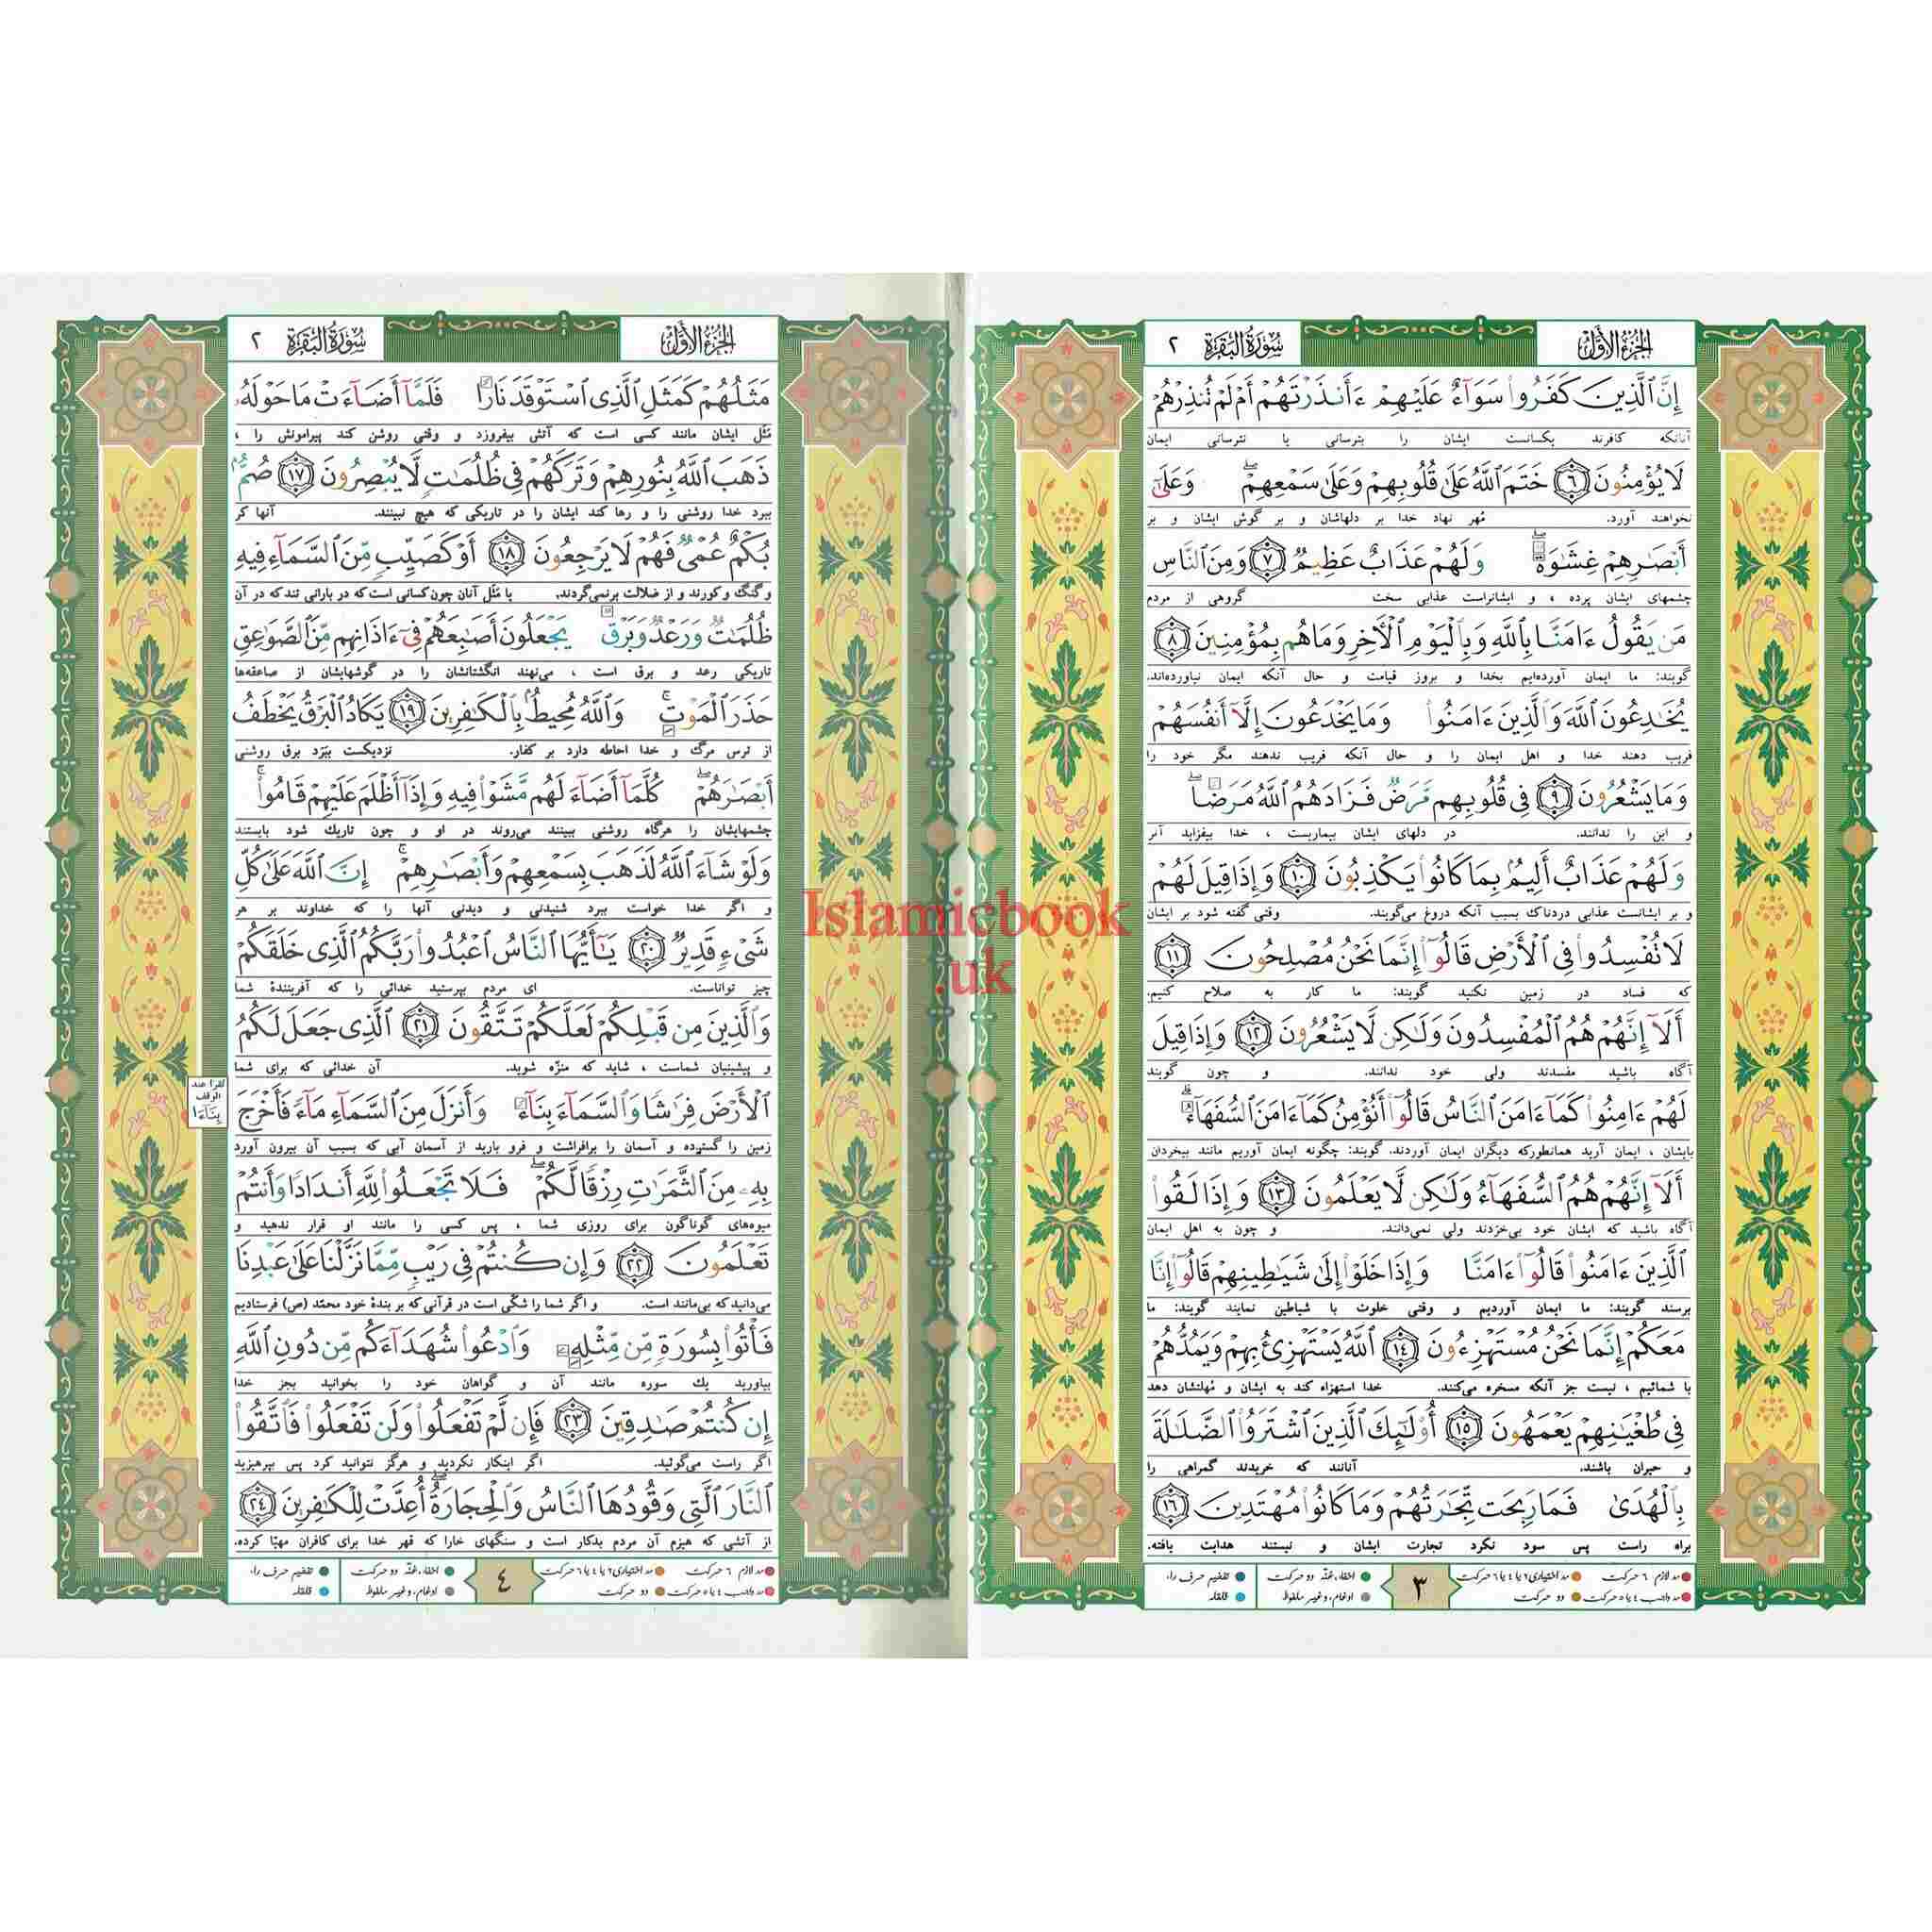 الجزء الأول
سورة البقرة ٢
إِنَّ ٱلَّذِينَ كَفَرُوا۟ سَوَآءٌ عَلَيْهِمْ ءَأَنذَرْتَهُمْ أَمْ لَمْ تُنذِرْهُمْ
آنانکه کافرند یکسانست ایشان را بترسانی یا نترسانی ایمان
لَا يُؤْمِنُونَ ﴿٦﴾ خَتَمَ ٱللَّهُ عَلَىٰ قُلُوبِهِمْ وَعَلَىٰ سَمْعِهِمْ ۖ وَعَلَىٰٓ
نخواهند آورد. مُهر نهاد خدا بر دلهاشان و بر گوش ایشان و بر
أَبْصَـٰرِهِمْ غِشَـٰوَةٌ ۖ وَلَهُمْ عَذَابٌ عَظِيمٌ ﴿٧﴾ وَمِنَ ٱلنَّاسِ
چشمهای ایشان پرده ، و ایشانراست عذابی سخت گروهی از مردم
مَن يَقُولُ ءَامَنَّا بِٱللَّهِ وَبِٱلْيَوْمِ ٱلْـَٔاخِرِ وَمَا هُم بِمُؤْمِنِينَ ﴿٨﴾
گویند: ما ایمان آورده‌ایم بخدا و بروز قیامت و حال آنکه ایمان نیاورده‌اند.
يُخَـٰدِعُونَ ٱللَّهَ وَٱلَّذِينَ ءَامَنُوا۟ وَمَا يَخْدَعُونَ إِلَّآ أَنفُسَهُمْ
فریب دهند خدا و اهل ایمان را و حال آنکه فریب ندهند مگر خود را
وَمَا يَشْعُرُونَ ﴿٩﴾ فِى قُلُوبِهِم مَّرَضٌ فَزَادَهُمُ ٱللَّهُ مَرَضًا ۖ
و این را ندانند. در دلهای ایشان بیماریست ، خدا بیفزاید آنر
وَلَهُمْ عَذَابٌ أَلِيمٌۢ بِمَا كَانُوا۟ يَكْذِبُونَ ﴿١٠﴾ وَإِذَا قِيلَ لَهُمْ
و بر ایشانست عذابی دردناک بسبب آنکه دروغ می‌گویند. وقتی گفته شود بر ایشان
لَا تُفْسِدُوا۟ فِى ٱلْأَرْضِ قَالُوٓا۟ إِنَّمَا نَحْنُ مُصْلِحُونَ ﴿١١﴾
که فساد در زمین نکنید گویند: ما کار به صلاح کنیم.
أَلَآ إِنَّهُمْ هُمُ ٱلْمُفْسِدُونَ وَلَـٰكِن لَّا يَشْعُرُونَ ﴿١٢﴾ وَإِذَا قِيلَ
آگاه باشید مفسدند ولی خود ندانند. و چون گویند
لَهُمْ ءَامِنُوا۟ كَمَآ ءَامَنَ ٱلنَّاسُ قَالُوٓا۟ أَنُؤْمِنُ كَمَآ ءَامَنَ ٱلسُّفَهَآءُ ۗ
بایشان ، ایمان آرید همانطورکه دیگران ایمان آوردند. گویند: چگونه ایمان آوریم مانند بیخردان
أَلَآ إِنَّهُمْ هُمُ ٱلسُّفَهَآءُ وَلَـٰكِن لَّا يَعْلَمُونَ ﴿١٣﴾ وَإِذَا لَقُوا۟
آگاه باشید که ایشان خود بی‌خردند ولی نمی‌دانند. و چون به اهل ایمان
ٱلَّذِينَ ءَامَنُوا۟ قَالُوٓا۟ ءَامَنَّا وَإِذَا خَلَوْا۟ إِلَىٰ شَيَـٰطِينِهِمْ قَالُوٓا۟ إِنَّا
برسند گویند: ما ایمان آوردیم و وقتی خلوت با شیاطین نمایند گویند: ما
مَعَكُمْ إِنَّمَا نَحْنُ مُسْتَهْزِءُونَ ﴿١٤﴾ ٱللَّهُ يَسْتَهْزِئُ بِهِمْ وَيَمُدُّهُمْ
با شمائیم ، نیست جز آنکه مسخره می‌کنند. خدا استهزاء کند به ایشان و مُهلتشان دهد
فِى طُغْيَـٰنِهِمْ يَعْمَهُونَ ﴿١٥﴾ أُو۟لَـٰٓئِكَ ٱلَّذِينَ ٱشْتَرَوُا۟ ٱلضَّلَـٰلَةَ
و حیران باشند. آنانند که خریدند گمراهی را
بِٱلْهُدَىٰ فَمَا رَبِحَت تِّجَـٰرَتُهُمْ وَمَا كَانُوا۟ مُهْتَدِينَ ﴿١٦﴾
براه راست پس سود نکرد تجارت ایشان و نیستند هدایت یافته.
مد لازم ٦ حرکت مد اختیاری ٢ یا ٤ یا ٦ حرکت اخفاء، غنّه دو حرکت تفخیم حرف راء
مد واجب ٤ یا ٥ حرکت دو حرکت ادغام، و غیر ملفوظ قلقله
٣
الجزء الأول
سورة البقرة ٢
مَثَلُهُمْ كَمَثَلِ ٱلَّذِى ٱسْتَوْقَدَ نَارًا فَلَمَّآ أَضَآءَتْ مَا حَوْلَهُۥ
مَثَل ایشان مانند کسی است که آتش بیفروزد و وقتی روشن کند پیرامونش را ،
ذَهَبَ ٱللَّهُ بِنُورِهِمْ وَتَرَكَهُمْ فِى ظُلُمَـٰتٍ لَّا يُبْصِرُونَ ﴿١٧﴾ صُمٌّۢ
ببرد خدا روشنی را و رها کند ایشان را در تاریکی که هیچ نبینند. آنها کر
بُكْمٌ عُمْىٌ فَهُمْ لَا يَرْجِعُونَ ﴿١٨﴾ أَوْ كَصَيِّبٍ مِّنَ ٱلسَّمَآءِ فِيهِ
و گنگ و کورند و از ضلالت برنمی‌گردند. یا مَثَل آنان چون کسانی است که در بارانی تند که در آن
ظُلُمَـٰتٌ وَرَعْدٌ وَبَرْقٌ يَجْعَلُونَ أَصَـٰبِعَهُمْ فِىٓ ءَاذَانِهِم مِّنَ ٱلصَّوَٰعِقِ
تاریکی رعد و برق است ، می‌نهند انگشتانشان را در گوشهایشان از صاعقه‌ها
حَذَرَ ٱلْمَوْتِ ۚ وَٱللَّهُ مُحِيطٌۢ بِٱلْكَـٰفِرِينَ ﴿١٩﴾ يَكَادُ ٱلْبَرْقُ يَخْطَفُ
از ترس مرگ و خدا احاطه دارد بر کفار. نزدیکست ببَرَد برق روشنی
أَبْصَـٰرَهُمْ ۖ كُلَّمَآ أَضَآءَ لَهُم مَّشَوْا۟ فِيهِ وَإِذَآ أَظْلَمَ عَلَيْهِمْ قَامُوا۟ ۚ
چشمهایشان را هرگاه روشنی ببینند می‌روند در او و چون تاریک شود بایستند
وَلَوْ شَآءَ ٱللَّهُ لَذَهَبَ بِسَمْعِهِمْ وَأَبْصَـٰرِهِمْ ۚ إِنَّ ٱللَّهَ عَلَىٰ كُلِّ
و اگر خدا خواست ببرد شنیدنی و دیدنی آنها را که خداوند بر هر
شَىْءٍ قَدِيرٌ ﴿٢٠﴾ يَـٰٓأَيُّهَا ٱلنَّاسُ ٱعْبُدُوا۟ رَبَّكُمُ ٱلَّذِى خَلَقَكُمْ
چیز تواناست. ای مردم بپرستید خدائی را که آفرینندهٔ شما
وَٱلَّذِينَ مِن قَبْلِكُمْ لَعَلَّكُمْ تَتَّقُونَ ﴿٢١﴾ ٱلَّذِى جَعَلَ لَكُمُ
و پیشینیان شماست ، شاید که منزّه شوید. آن خدائی که برای شما
ٱلْأَرْضَ فِرَٰشًا وَٱلسَّمَآءَ بِنَآءً وَأَنزَلَ مِنَ ٱلسَّمَآءِ مَآءً فَأَخْرَجَ
تقرأ عند
الوقف
بِنَآءَا
زمین را گسترده و آسمان را برافراشت و فرو بارید از آسمان آبی که بسبب آن بیرون آورد
بِهِۦ مِنَ ٱلثَّمَرَٰتِ رِزْقًا لَّكُمْ ۖ فَلَا تَجْعَلُوا۟ لِلَّهِ أَندَادًا وَأَنتُمْ
میوه‌های گوناگون برای روزی شما ، پس کسی را مانند او قرار ندهید و
تَعْلَمُونَ ﴿٢٢﴾ وَإِن كُنتُمْ فِى رَيْبٍ مِّمَّا نَزَّلْنَا عَلَىٰ عَبْدِنَا
می‌دانید که بی‌مانند است. و اگر شما را شکّی است در قرآنی که بر بندهٔ خود محمّد (ص) فرستادیم
فَأْتُوا۟ بِسُورَةٍ مِّن مِّثْلِهِۦ وَٱدْعُوا۟ شُهَدَآءَكُم مِّن دُونِ ٱللَّهِ
بیاورید یک سوره مانند آن و گواهان خود را بخوانید بجز خدا
إِن كُنتُمْ صَـٰدِقِينَ ﴿٢٣﴾ فَإِن لَّمْ تَفْعَلُوا۟ وَلَن تَفْعَلُوا۟ فَٱتَّقُوا۟
اگر راست می‌گوئید. اگر اینکار نکردید و هرگز نتوانید کرد پس بپرهیزید
ٱلنَّارَ ٱلَّتِى وَقُودُهَا ٱلنَّاسُ وَٱلْحِجَارَةُ ۖ أُعِدَّتْ لِلْكَـٰفِرِينَ ﴿٢٤﴾
از آتشی که هیزم آن مردم بدکار است و سنگهای خارا که قهر خدا برای کافران مهیّا کرده.
مد لازم ٦ حرکت مد اختیاری ٢ یا ٤ یا ٦ حرکت اخفاء، غنّه دو حرکت تفخیم حرف راء
مد واجب ٤ یا ٥ حرکت دو حرکت ادغام، و غیر ملفوظ قلقله
٤
Islamicbook
.uk